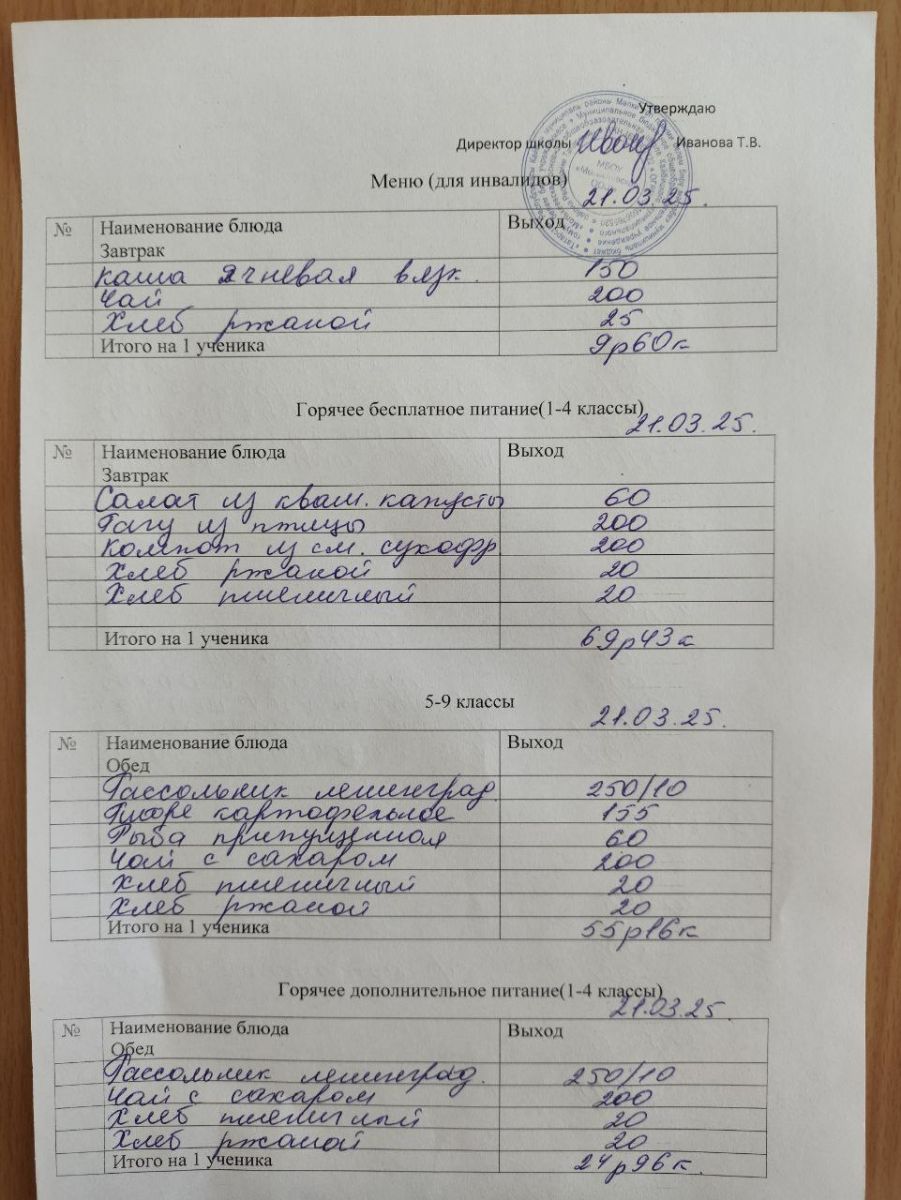 Утверждаю
Директор школы Иванова Т.В.
Меню (для инвалидов)
21.03.25.
№ Наименование блюда Выход
Завтрак
Каша ячневая вязк. 150
Чай 200
Хлеб ржаной 25
Итого на 1 ученика 9р60к
Горячее бесплатное питание(1-4 классы)
21.03.25.
№ Наименование блюда Выход
Завтрак
Салат из кваш. капусты 60
Рагу из птицы 200
Компот из см. сухофр 200
Хлеб ржаной 20
Хлеб пшеничный 20
Итого на 1 ученика 69р43к
5-9 классы
21.03.25.
№ Наименование блюда Выход
Обед
Рассольник ленинград. 250/10
Пюре картофельное 155
Рыба припущенная 60
Чай с сахаром 200
Хлеб пшеничный 20
Хлеб ржаной 20
Итого на 1 ученика 55р16к
Горячее дополнительное питание(1-4 классы)
21.03.25.
№ Наименование блюда Выход
Обед
Рассольник ленинград. 250/10
Чай с сахаром 200
Хлеб пшеничный 20
Хлеб ржаной 20
Итого на 1 ученика 24р96к.